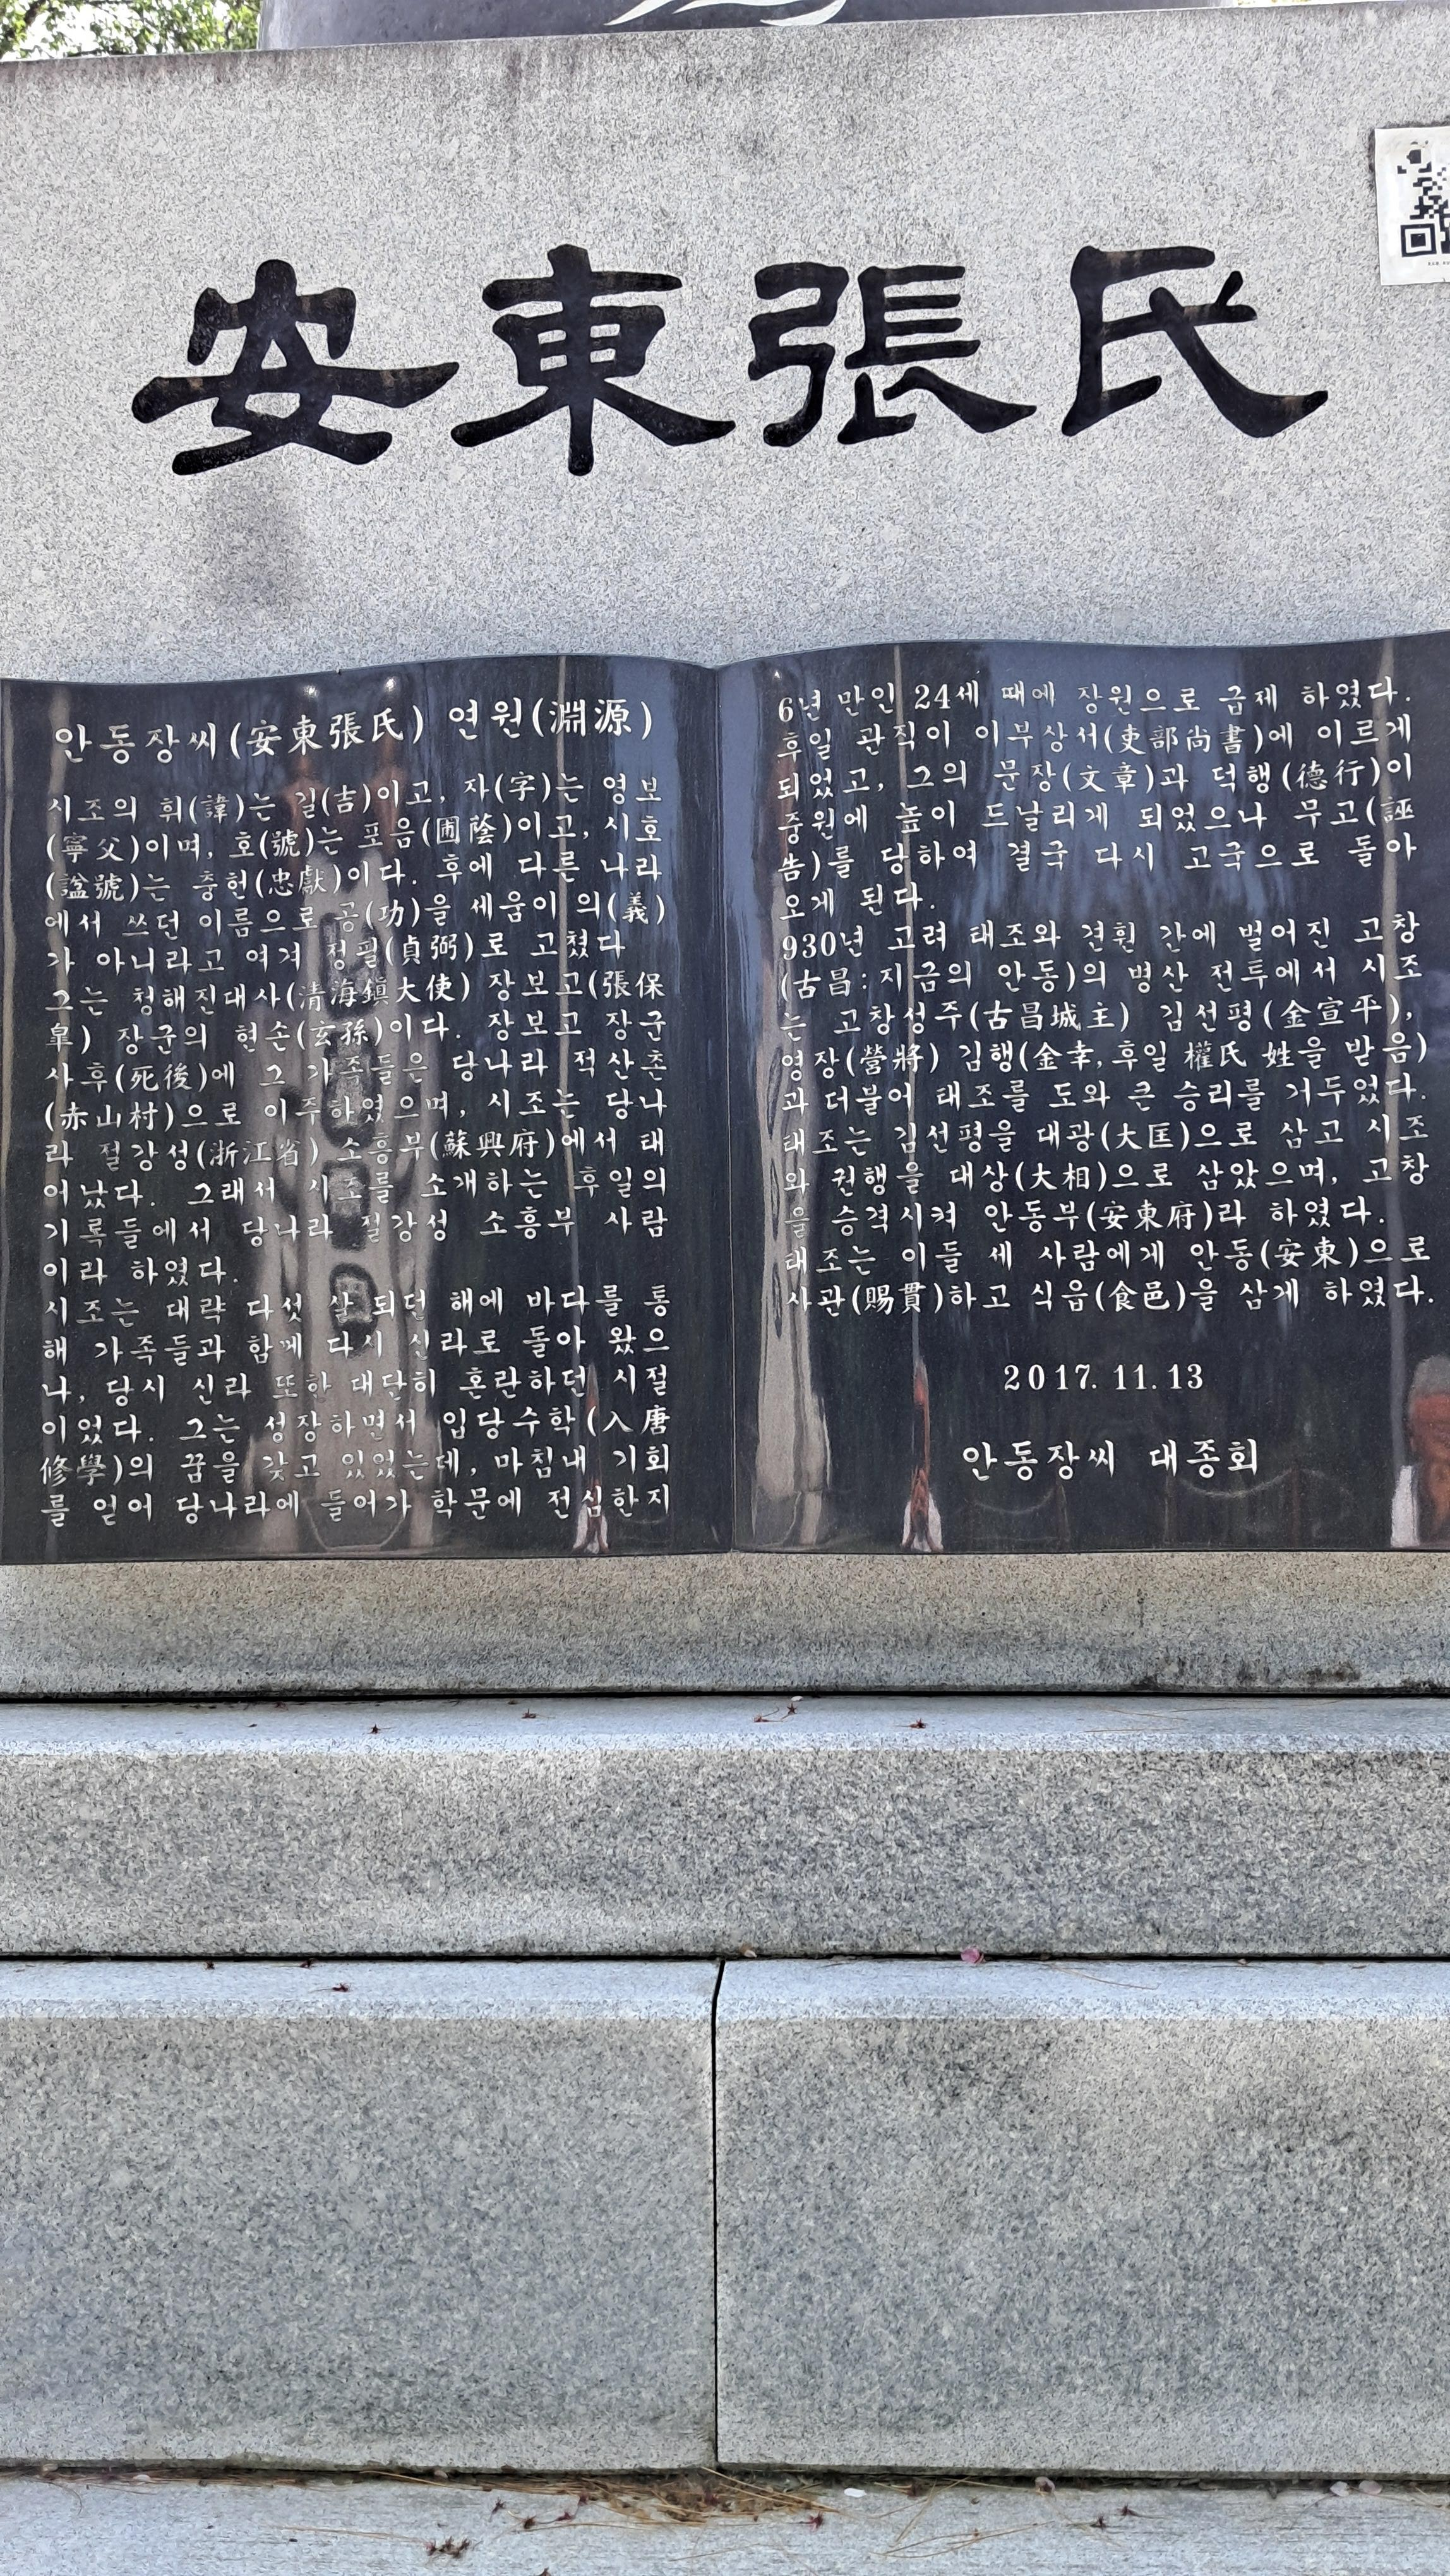 安東張氏
안동장씨(安東張氏) 연원(淵源)
시조의 휘(諱)는 길(吉)이고, 자(字)는 영보
(寧父)이며, 호(號)는 포음(圃蔭)이고, 시호
(諡號)는 충헌(忠獻)이다. 후에 다른 나라
에서 쓰던 이름으로 공(功)을 세움이 의(義)
가 아니라고 여겨 정필(貞弼)로 고쳤다
그는 청해진대사(清海鎮大使) 장보고(張保
皐) 장군의 현손(玄孫)이다. 장보고 장군
사후(死後)에 그 가족들은 당나라 적산촌
(赤山村)으로 이주하였으며, 시조는 당나
라 절강성(浙江省) 소흥부(蘇興府)에서 태
어났다. 그래서 시조를 소개하는 후일의
기록들에서 당나라 절강성 소흥부 사람
이라 하였다.
시조는 대략 다섯 살 되던 해에 바다를 통
해 가족들과 함께 다시 신라로 돌아 왔으
나, 당시 신라 또한 대단히 혼란하던 시절
이었다. 그는 성장하면서 입당수학(入唐
修學)의 꿈을 갖고 있었는데, 마침내 기회
를 얻어 당나라에 들어가 학문에 전심한지
6년 만인 24세 때에 장원으로 급제 하였다.
후일 관직이 이부상서(吏部尚書)에 이르게
되었고, 그의 문장(文章)과 덕행(德行)이
중원에 높이 드날리게 되었으나 무고(誣
告)를 당하여 결국 다시 고국으로 돌아
오게 된다.
930년 고려 태조와 견훤 간에 벌어진 고창
(古昌:지금의 안동)의 병산 전투에서 시조
는 고창성주(古昌城主) 김선평(金宣平),
영장(營將) 김행(金幸,후일 權氏 姓을 받음)
과 더불어 태조를 도와 큰 승리를 거두었다.
태조는 김선평을 대광(大匡)으로 삼고 시조
와 권행을 대상(大相)으로 삼았으며, 고창
을 승격시켜 안동부(安東府)라 하였다.
태조는 이들 세 사람에게 안동(安東)으로
사관(賜貫)하고 식읍(食邑)을 삼게 하였다.
2017. 11. 13
안동장씨 대종회